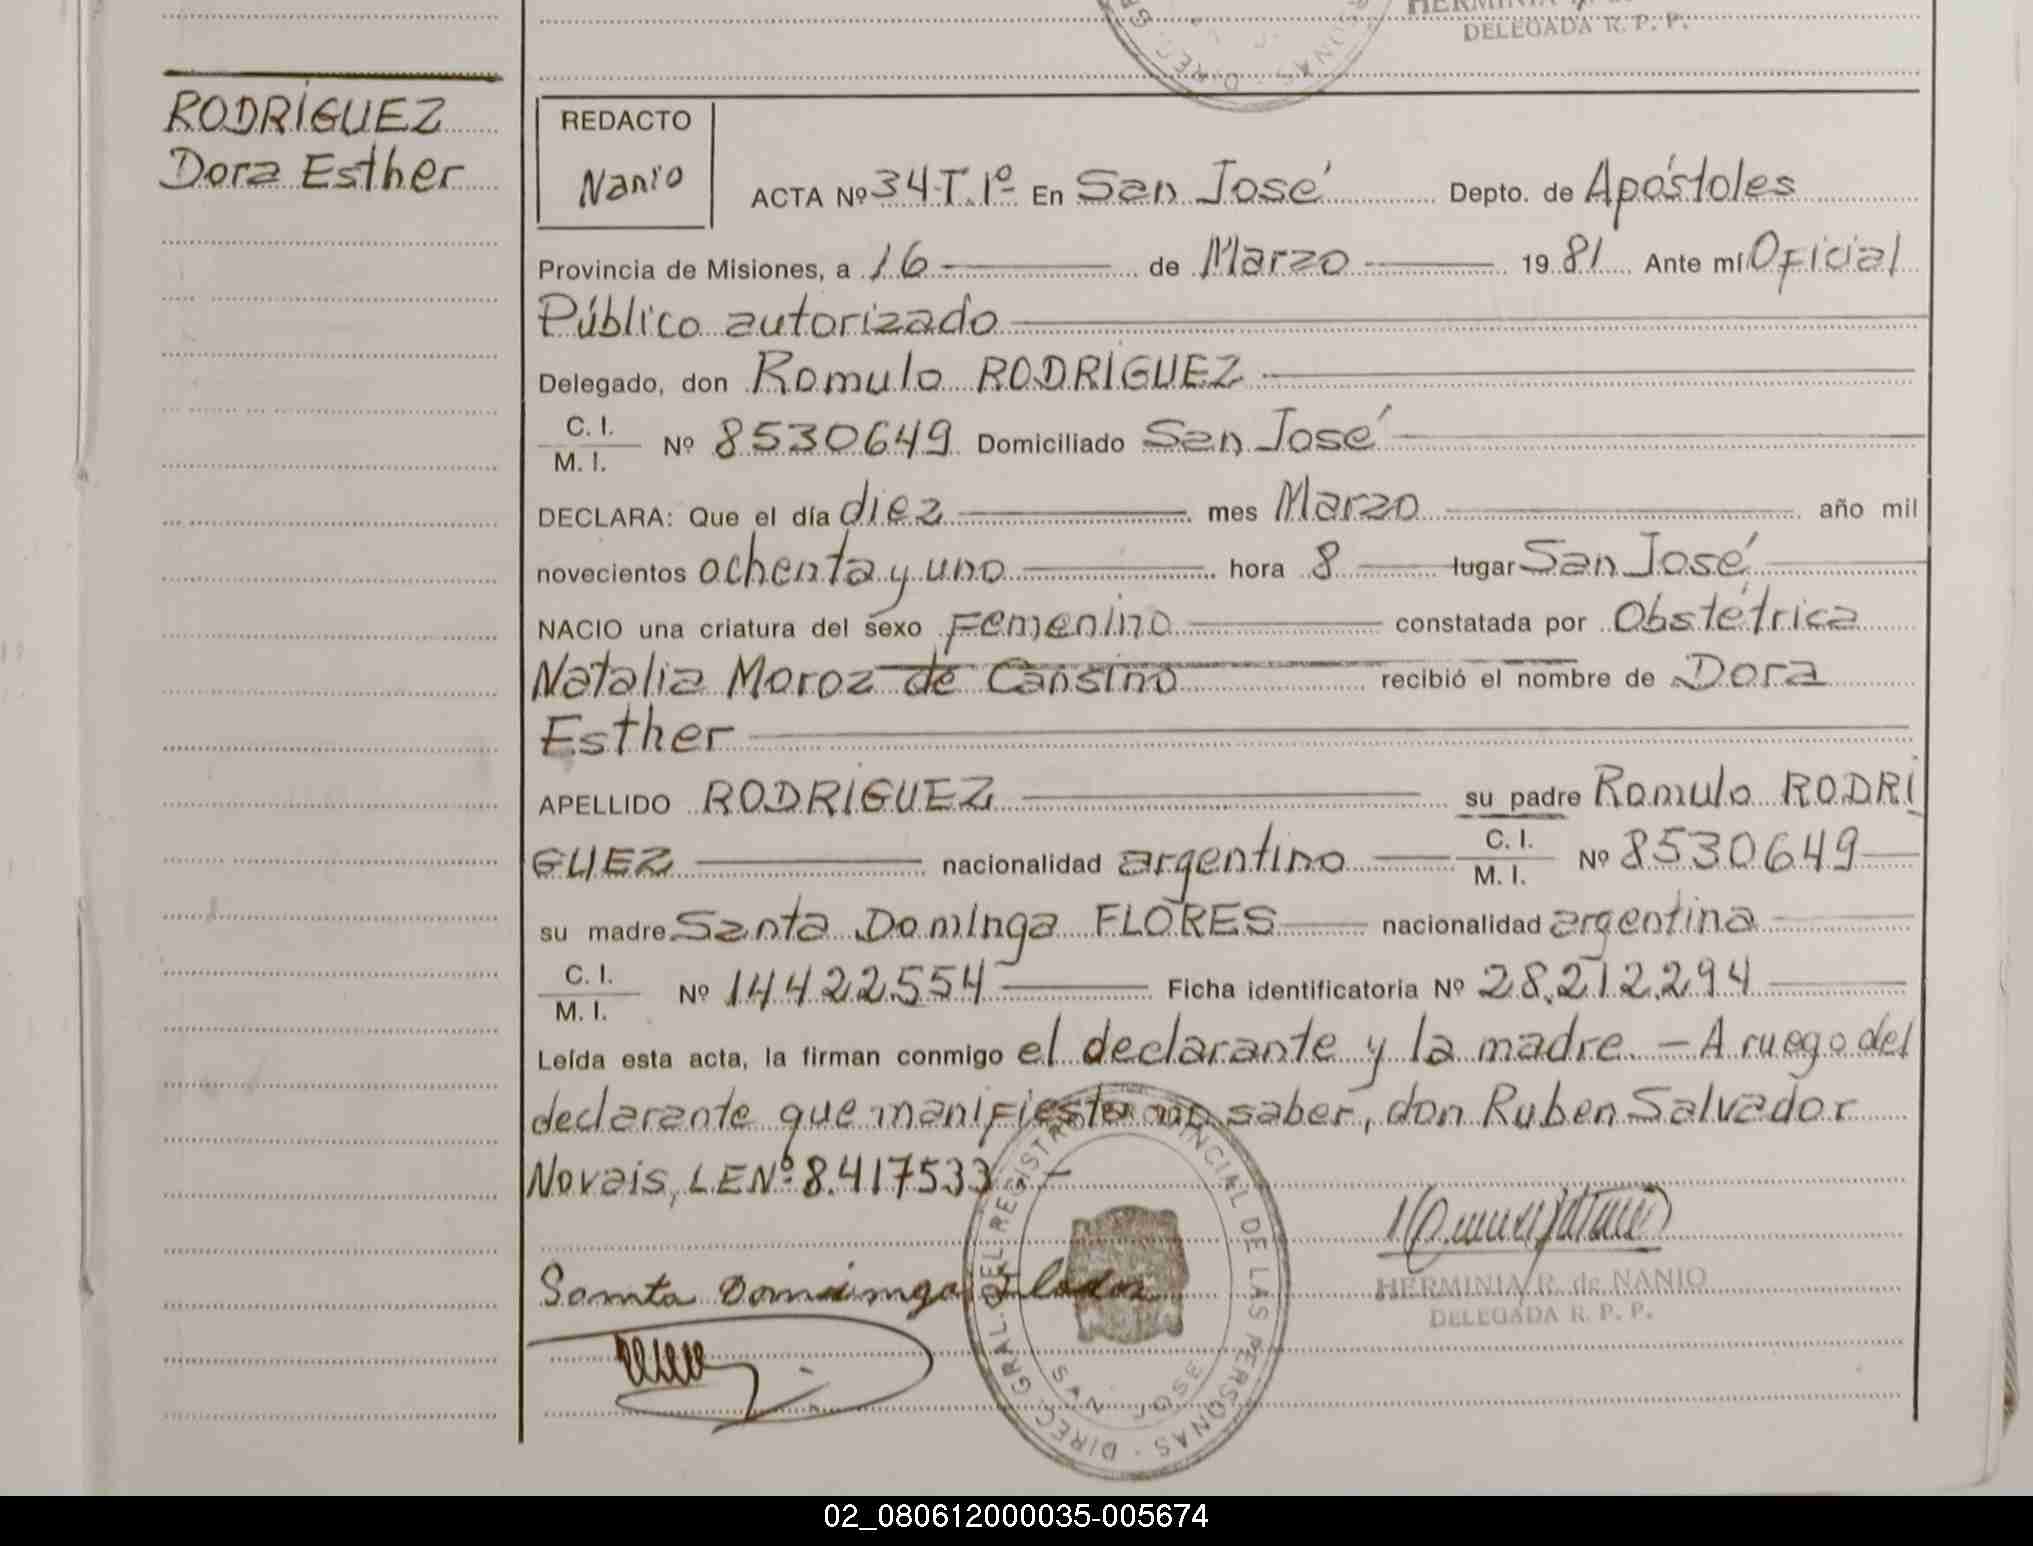 DELEGADA R. P. P.
RODRIGUEZ
Dora Esther
REDACTO
Nanio
ACTA Nº 34-T.1º En San José Depto. de Apóstoles
Provincia de Misiones, a 16 de Marzo 1981 Ante mí Oficial
Público autorizado
Delegado, don Romulo RODRIGUEZ
C. I.
M. I. Nº 8530649 Domiciliado San José
DECLARA: Que el día diez mes Marzo año mil
novecientos ochenta y uno hora 8 lugar San José
NACIO una criatura del sexo Femenino constatada por Obstétrica
Natalia Moroz de Cansino recibió el nombre de Dora
Esther
APELLIDO RODRIGUEZ su padre Romulo RODRI
GUEZ nacionalidad argentino C. I. M. I. Nº 8530649
su madre Santa Dominga FLORES nacionalidad argentina
C. I.
M. I. Nº 14422554 Ficha identificatoria Nº 28.212.294
Leída esta acta, la firman conmigo el declarante y la madre. - A ruego del
declarante que manifiesta no saber, don Ruben Salvador
Novais, LENº 8.417533. -
Santa Dominga
HERMINIA R. de NANIO
DELEGADA R. P. P.
DIREC. GRAL. DEL REGISTRO PROVINCIAL DE LAS PERSONAS
SAN JOSE
02_080612000035-005674